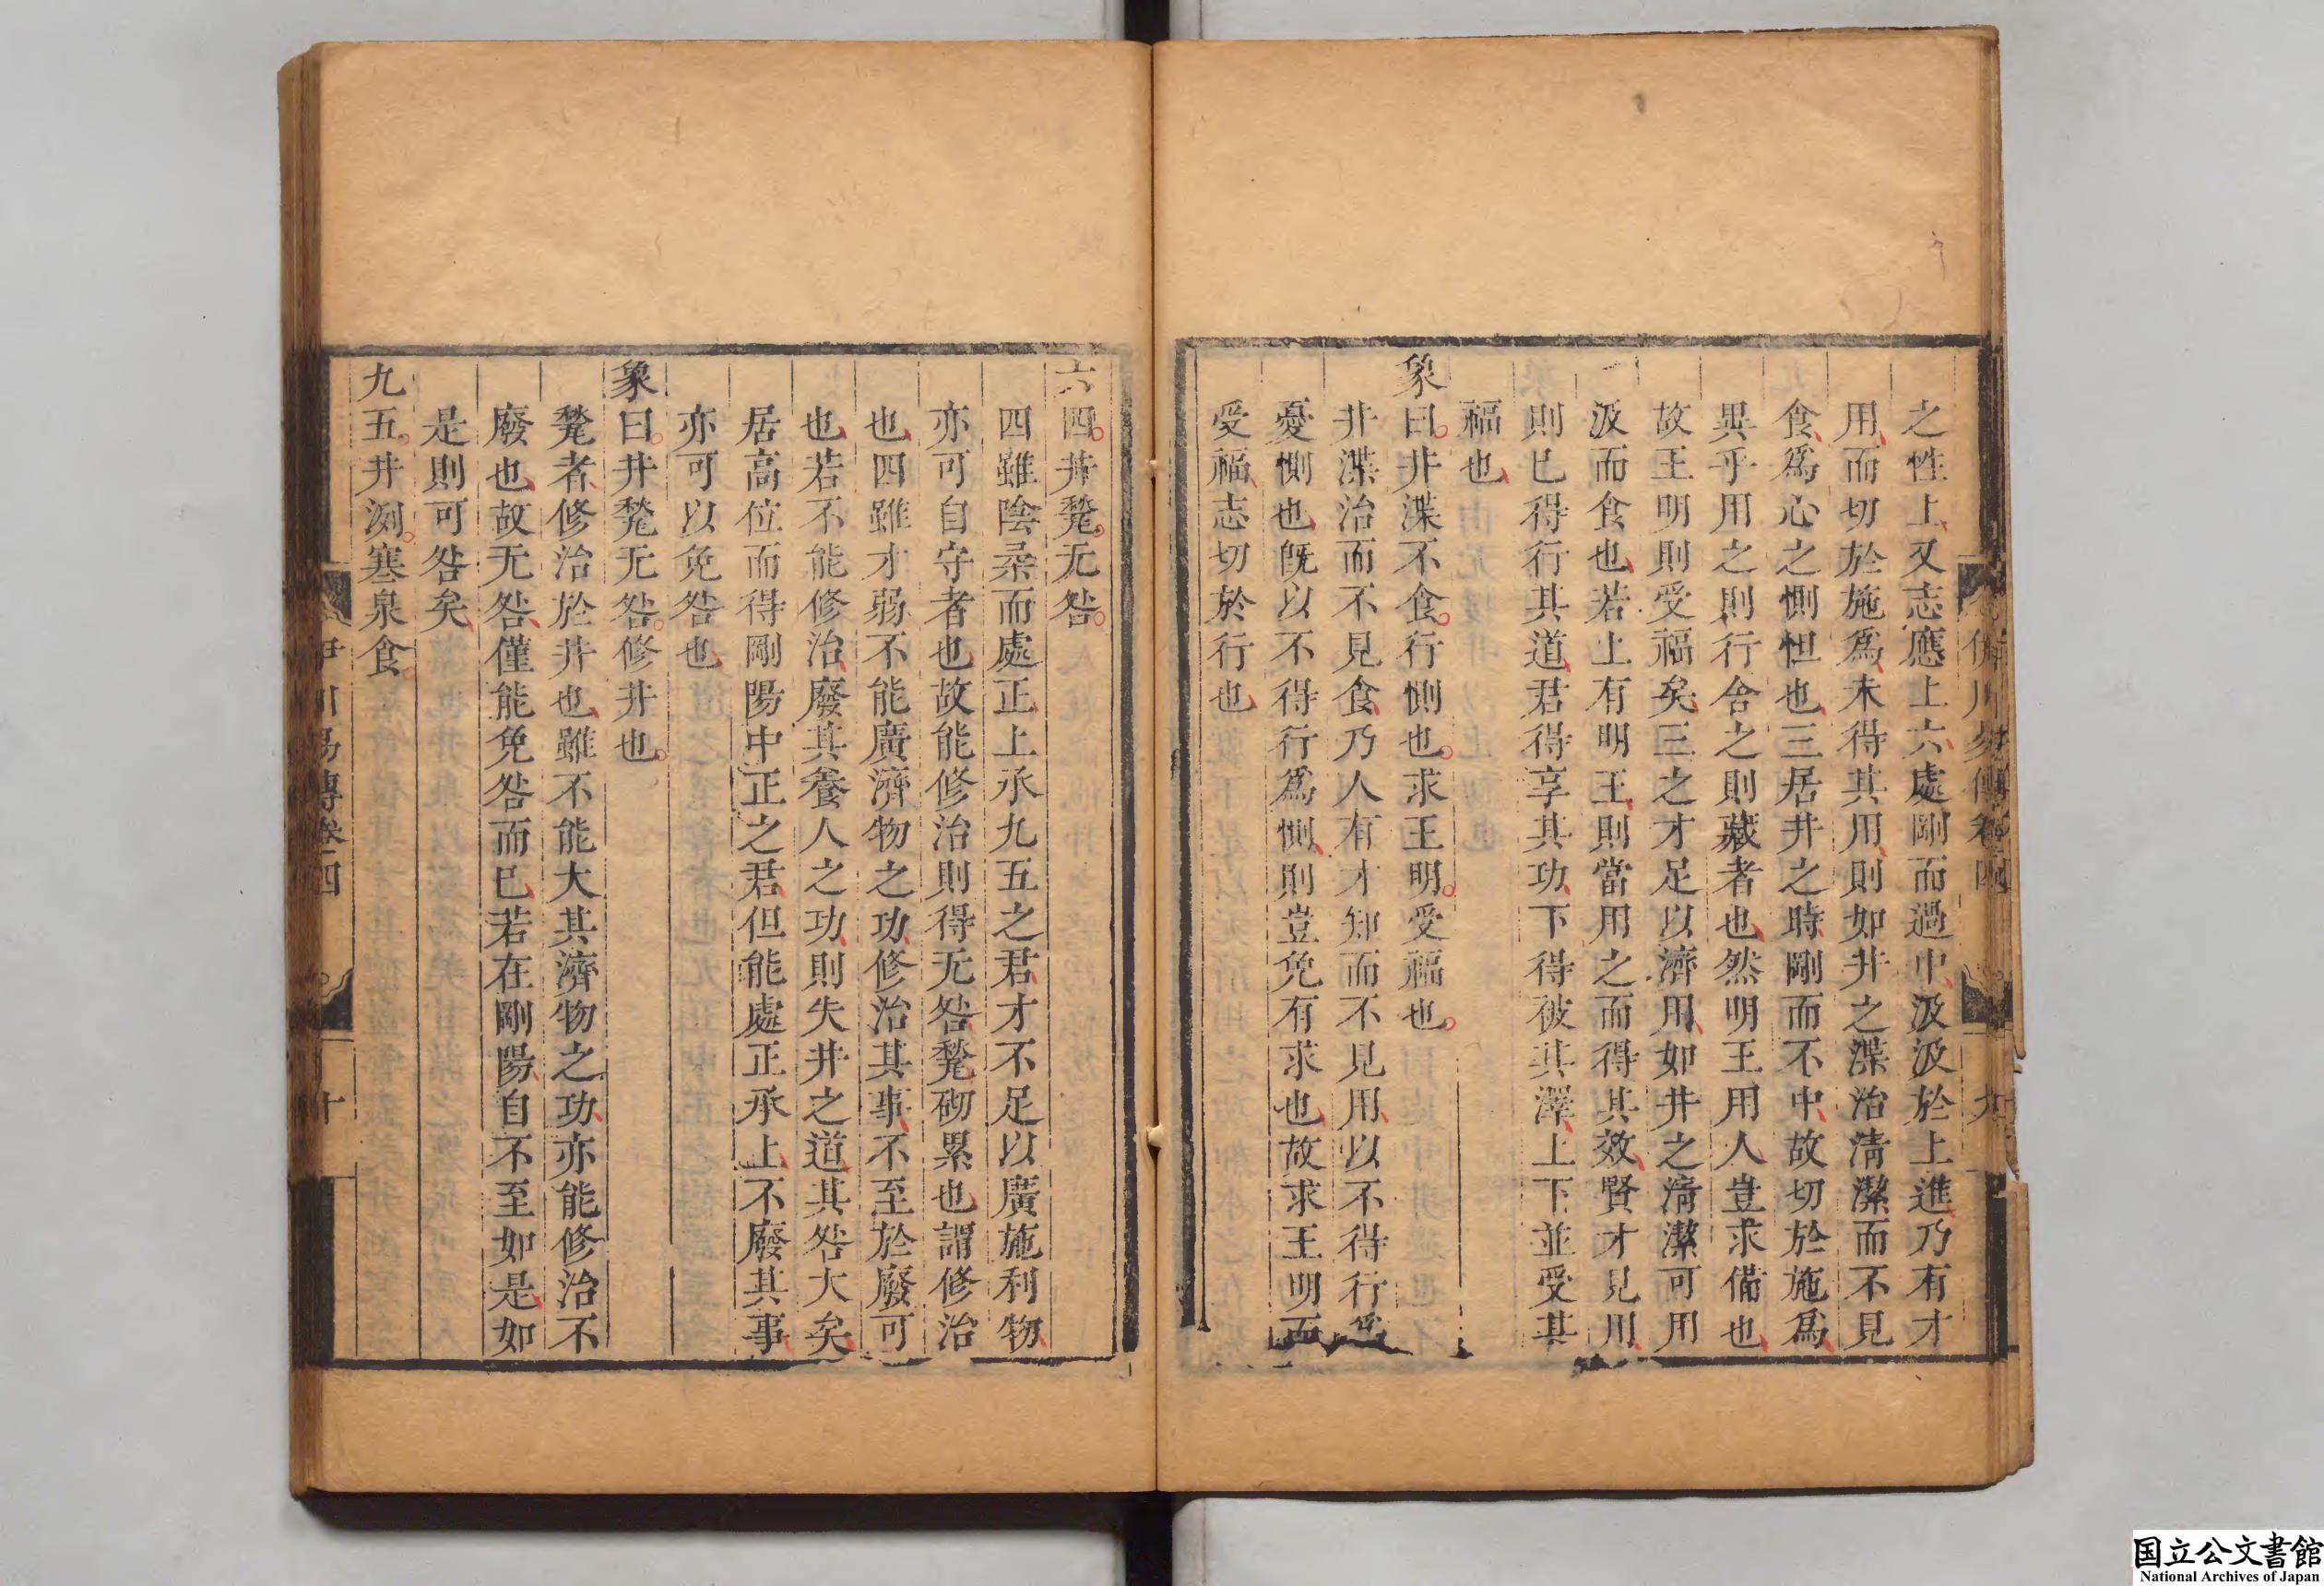 之性上又志應上六處剛而過中汲汲於上進乃有才
用而切於施爲未得其用則如井之渫治清潔而不見
食爲心之惻怛也三居井之時剛而不中故切於施爲
異乎用之則行舍之則藏者也然明王用人豈求備也
故王明則受福矣三之才足以濟用如井之清潔可用
汲而食也若上有明王則當用之而得其效賢才見用
則已得行其道君得享其功下得被其澤上下並受其
福也
象曰井渫不食行惻也求王明受福也
井渫治而不見食乃人有才知而不見用以不得行爲
憂惻也旣以不得行爲惻則豈免有求也故求王明而
受福志切於行也
六四井甃无咎
四雖陰柔而處正上承九五之君才不足以廣施利物
亦可自守者也故能修治則得无咎甃砌累也謂修治
也四雖才弱不能廣濟物之功修治其事不至於廢可
也若不能修治廢其養人之功則失井之道其咎大矣
居高位而得剛陽中正之君但能處正承上不廢其事
亦可以免咎也
象曰井甃无咎修井也
甃者修治於井也雖不能大其濟物之功亦能修治不
廢也故无咎僅能免咎而已若在剛陽自不至如是如
是則可咎矣
九五井洌寒泉食
伊川易傳卷四
十
国立公文書館
National Archives of Japan